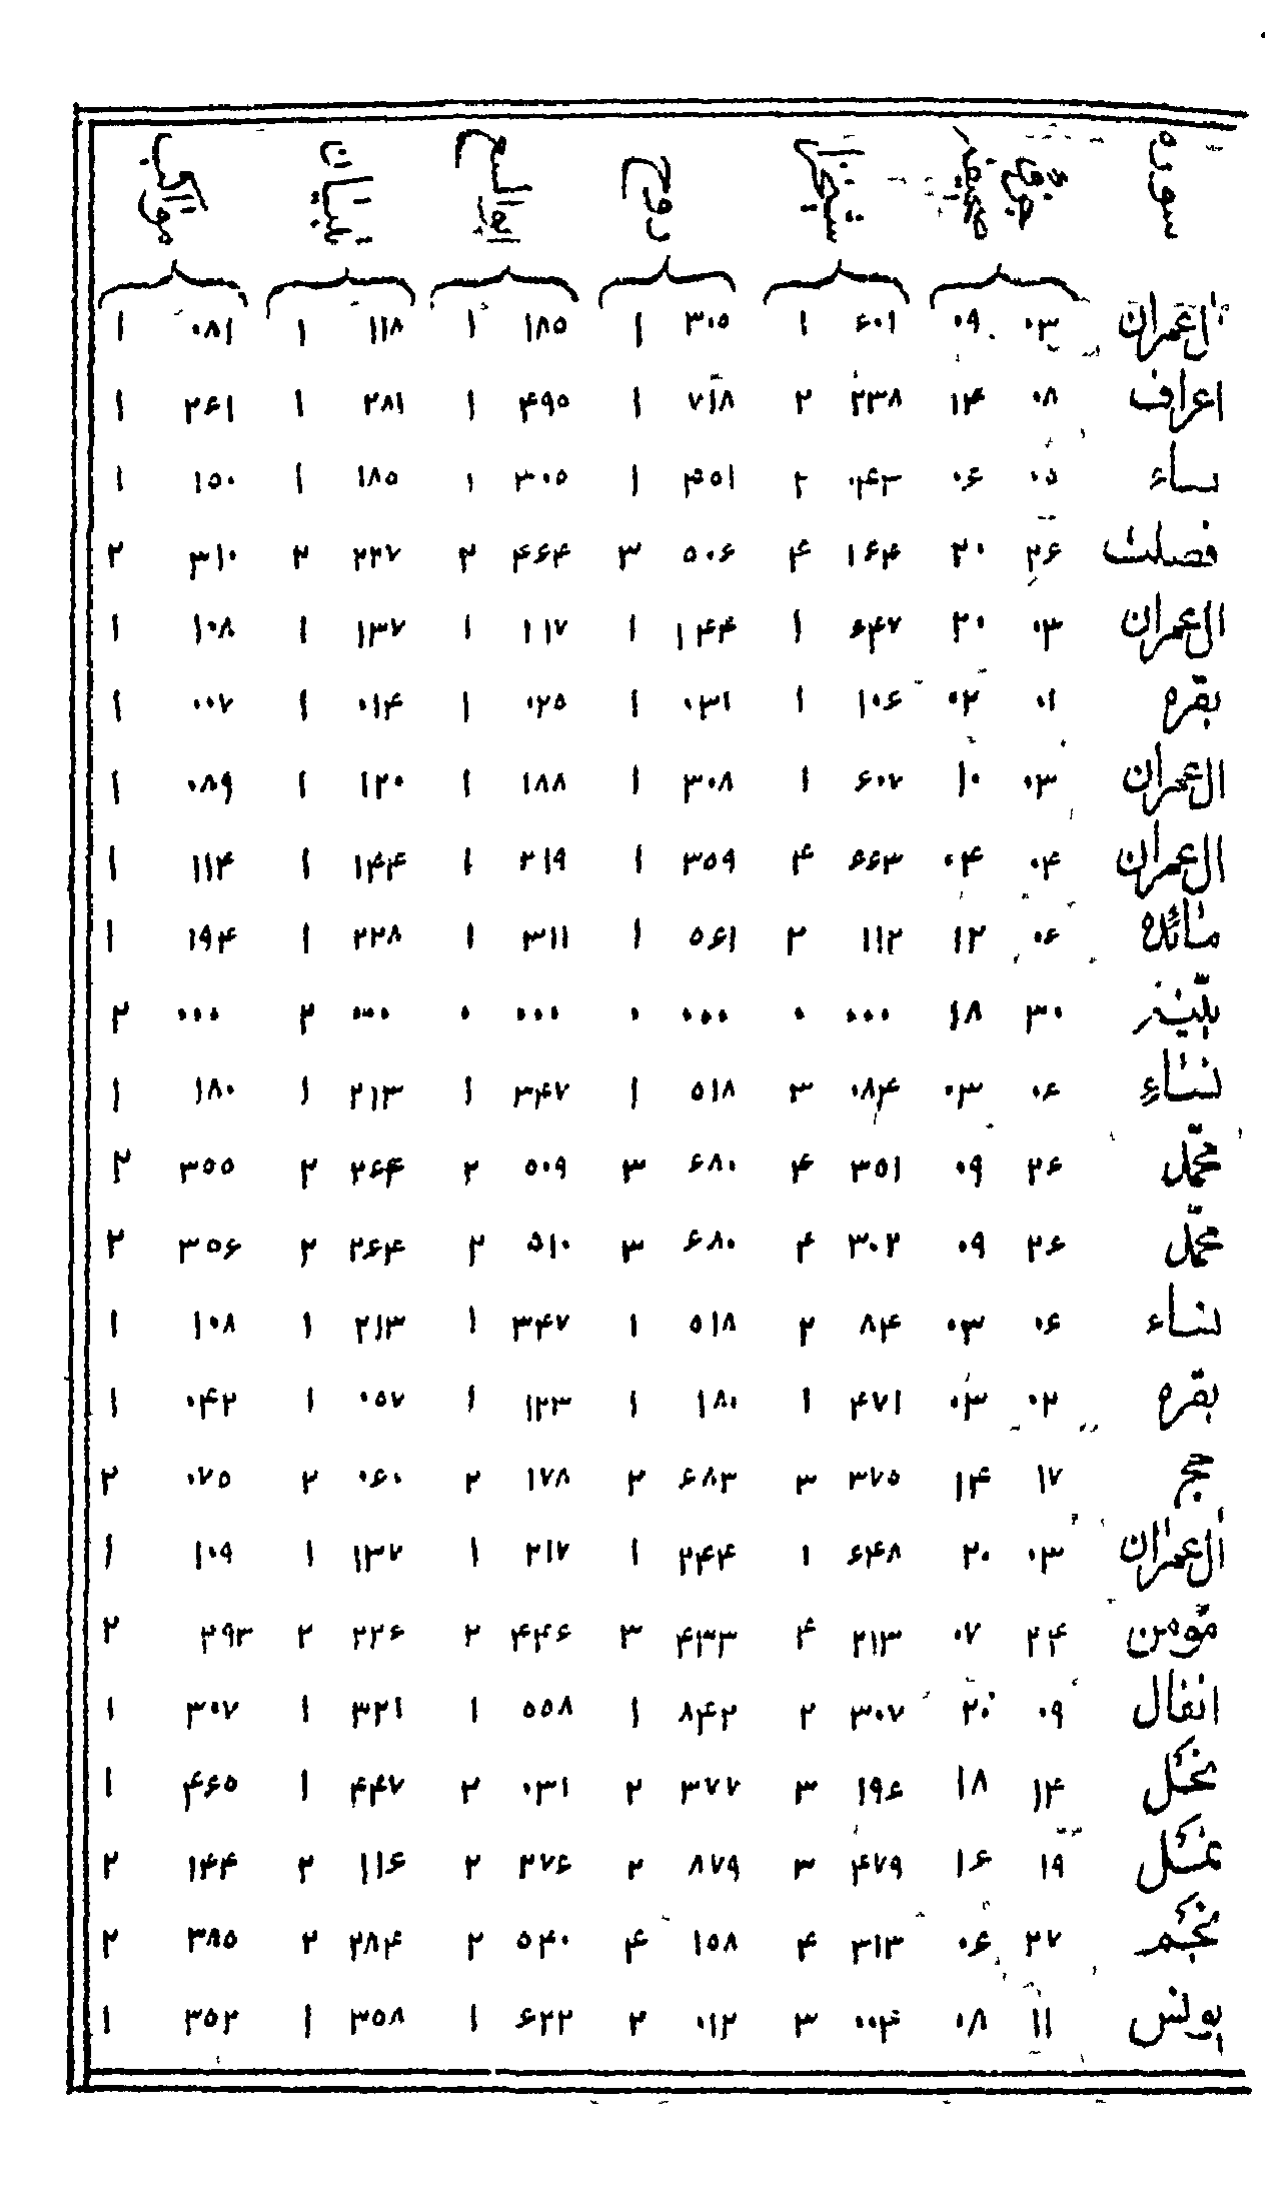 سوره
آل عمران ۰۳ ۰۹ ۶۰۱ ۱ ۳۰۵ ۱ ۱۸۵ ۱ ۱۱۸ ۱ ۰۸۱ ۱
اعراف ۰۸ ۱۴ ۲۳۸ ۲ ۷۱۸ ۱ ۴۹۵ ۱ ۲۸۱ ۱ ۲۶۱ ۱
نساء ۰۵ ۰۶ ۰۴۳ ۲ ۴۵۱ ۱ ۳۰۵ ۱ ۱۸۵ ۱ ۱۵۰ ۱
فصلت ۲۶ ۲۰ ۱۶۴ ۴ ۵۰۶ ۳ ۴۶۴ ۲ ۲۲۷ ۲ ۳۱۰ ۲
ال عمران ۰۳ ۲۰ ۶۴۷ ۱ ۱۴۴ ۱ ۱۱۷ ۱ ۱۳۷ ۱ ۱۰۸ ۱
بقره ۰۱ ۰۲ ۱۰۶ ۱ ۰۳۱ ۱ ۰۲۵ ۱ ۰۱۴ ۱ ۰۰۷ ۱
ال عمران ۰۳ ۱۰ ۶۰۷ ۱ ۳۰۸ ۱ ۱۸۸ ۱ ۱۲۰ ۱ ۰۸۹ ۱
ال عمران ۰۴ ۰۴ ۶۶۳ ۴ ۳۵۹ ۱ ۲۱۹ ۱ ۱۴۴ ۱ ۱۱۴ ۱
مائده ۰۶ ۱۲ ۱۱۲ ۲ ۵۶۱ ۱ ۳۱۱ ۱ ۲۲۸ ۱ ۱۹۴ ۱
بیّنه ۳۰ ۱۸ ۰۰۰ ۰ ۰۰۰ ۰ ۰۰۰ ۰ ۰۰۰ ۲ ۰۰۰ ۲
نساء ۰۶ ۰۳ ۰۸۴ ۳ ۵۱۸ ۱ ۳۴۷ ۱ ۲۱۳ ۱ ۱۸۰ ۱
محمّد ۲۶ ۰۹ ۳۵۱ ۴ ۶۸۰ ۳ ۵۰۹ ۲ ۲۶۴ ۲ ۳۵۵ ۲
محمّد ۲۶ ۰۹ ۳۰۲ ۴ ۶۸۰ ۳ ۵۱۰ ۲ ۲۶۴ ۲ ۳۵۶ ۲
نساء ۰۶ ۰۳ ۸۴ ۲ ۵۱۸ ۱ ۳۴۷ ۱ ۲۱۳ ۱ ۱۰۸ ۱
بقره ۰۲ ۰۳ ۴۷۱ ۱ ۱۸۰ ۱ ۱۲۳ ۱ ۰۵۷ ۱ ۰۴۲ ۱
حج ۱۷ ۱۴ ۳۷۵ ۳ ۶۸۳ ۲ ۱۷۸ ۲ ۰۶۰ ۲ ۰۷۵ ۲
ال عمران ۰۳ ۲۰ ۶۴۸ ۱ ۲۴۴ ۱ ۲۱۷ ۱ ۱۳۷ ۱ ۱۰۹ ۱
مؤمن ۲۴ ۰۷ ۲۱۳ ۴ ۴۳۳ ۳ ۴۴۶ ۲ ۲۲۶ ۲ ۲۹۳ ۲
انفال ۰۹ ۲۰ ۳۰۷ ۲ ۸۴۲ ۱ ۵۵۸ ۱ ۳۲۱ ۱ ۳۰۷ ۱
نحل ۱۴ ۱۸ ۱۹۶ ۳ ۳۷۷ ۲ ۰۳۱ ۲ ۴۴۷ ۱ ۴۶۵ ۱
نمل ۱۹ ۱۶ ۴۷۹ ۳ ۸۷۹ ۲ ۲۷۶ ۲ ۱۱۶ ۲ ۱۴۴ ۲
نجم ۲۷ ۰۶ ۳۱۳ ۴ ۱۵۸ ۴ ۵۴۰ ۲ ۲۸۴ ۲ ۳۸۵ ۲
یونس ۱۱ ۰۸ ۰۰۴ ۳ ۰۱۲ ۲ ۶۲۲ ۱ ۳۵۸ ۱ ۳۵۲ ۱